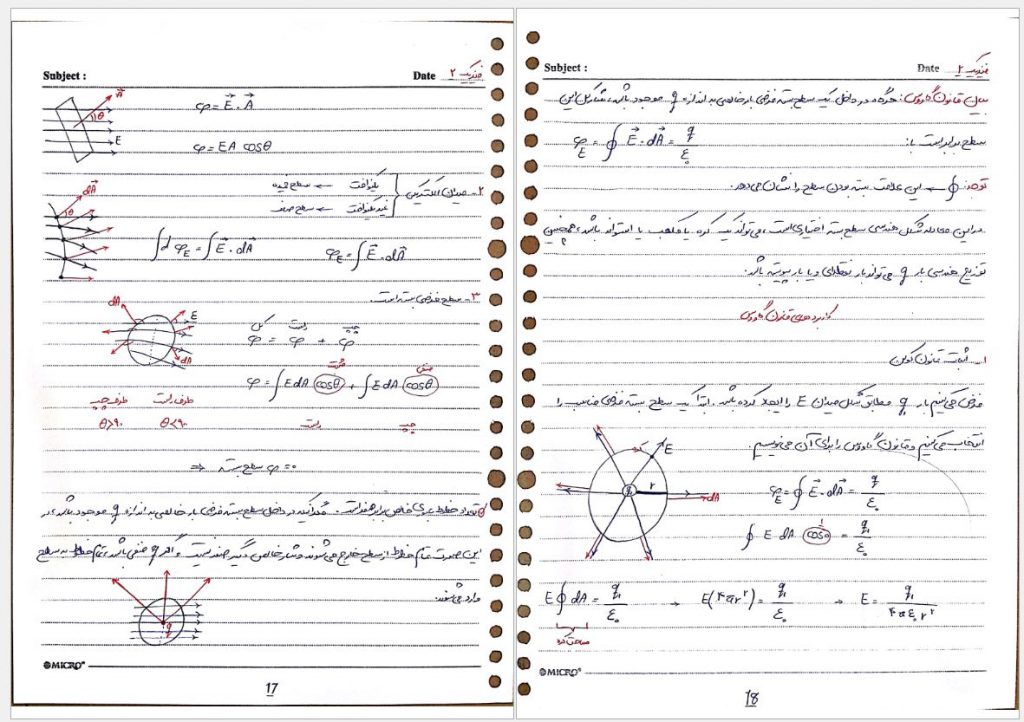 Subject :
Date فیزیک ۲
A
θ
E
φ = E . A
φ = EA cosθ
dA
θ
۲- میدان الکتریکی
یکنواخت ← سطح خمیده
غیریکنواخت ← سطح صاف
∫dφE = ∫E . dA
φE = ∫E . dA
۳- سطح فرضی بسته است.
dA
E
dA
کل راست چپ
φ = φ + φ
مثبت منفی
φ = ∫EdA cosθ + ∫EdA cosθ
راست چپ
طرف راست طرف چپ
θ<۹۰ θ>۹۰
⇒ φ سطح بسته = ۰
تعداد خطوط برای خاص برابر صفر است. هرگاه در داخل سطح بسته فرضی بار خالصی به اندازه q موجود باشد، در
این صورت تمام خطوط از سطح خارج می‌شوند و شار خالص دیگر صفر نیست و اگر q منفی باشد، تمام خطوط به سطح
وارد می‌شوند.
q
MICRO
17
Subject :
Date فیزیک ۲
بیان قانون گاوس: هرگاه در داخل یک سطح بسته فرضی بار خالصی به اندازه q موجود باشد، شار کل این
سطح برابر است با:
φE = ∮E . dA = q/ε₀
توجه: ∮ ← این علامت بسته بودن سطح را نشان می‌دهد.
در این معادله شکل هندسی سطح بسته اختیاری است، می‌تواند یک کره، یا مکعب یا استوانه باشد، همچنین
توزیع هندسی بار q می‌تواند بار نقطه‌ای و یا بار پیوسته باشد.
کاربردهای قانون گاوس
۱- اثبات قانون کولن
فرض می‌کنیم بار q مطابق شکل میدان E را ایجاد کرده باشد. ابتدا یک سطح بسته فرضی مناسب را
انتخاب می‌کنیم و قانون گاوس را برای آن می‌نویسیم.
E
r
dA
φE = ∮E . dA = q₁/ε₀
∮ E dA cos0 = q₁/ε₀
1
E∮dA = q₁/ε₀ → E(۴πr²) = q₁/ε₀ → E = q₁/۴πε₀r²
مساحت کره
MICRO
18